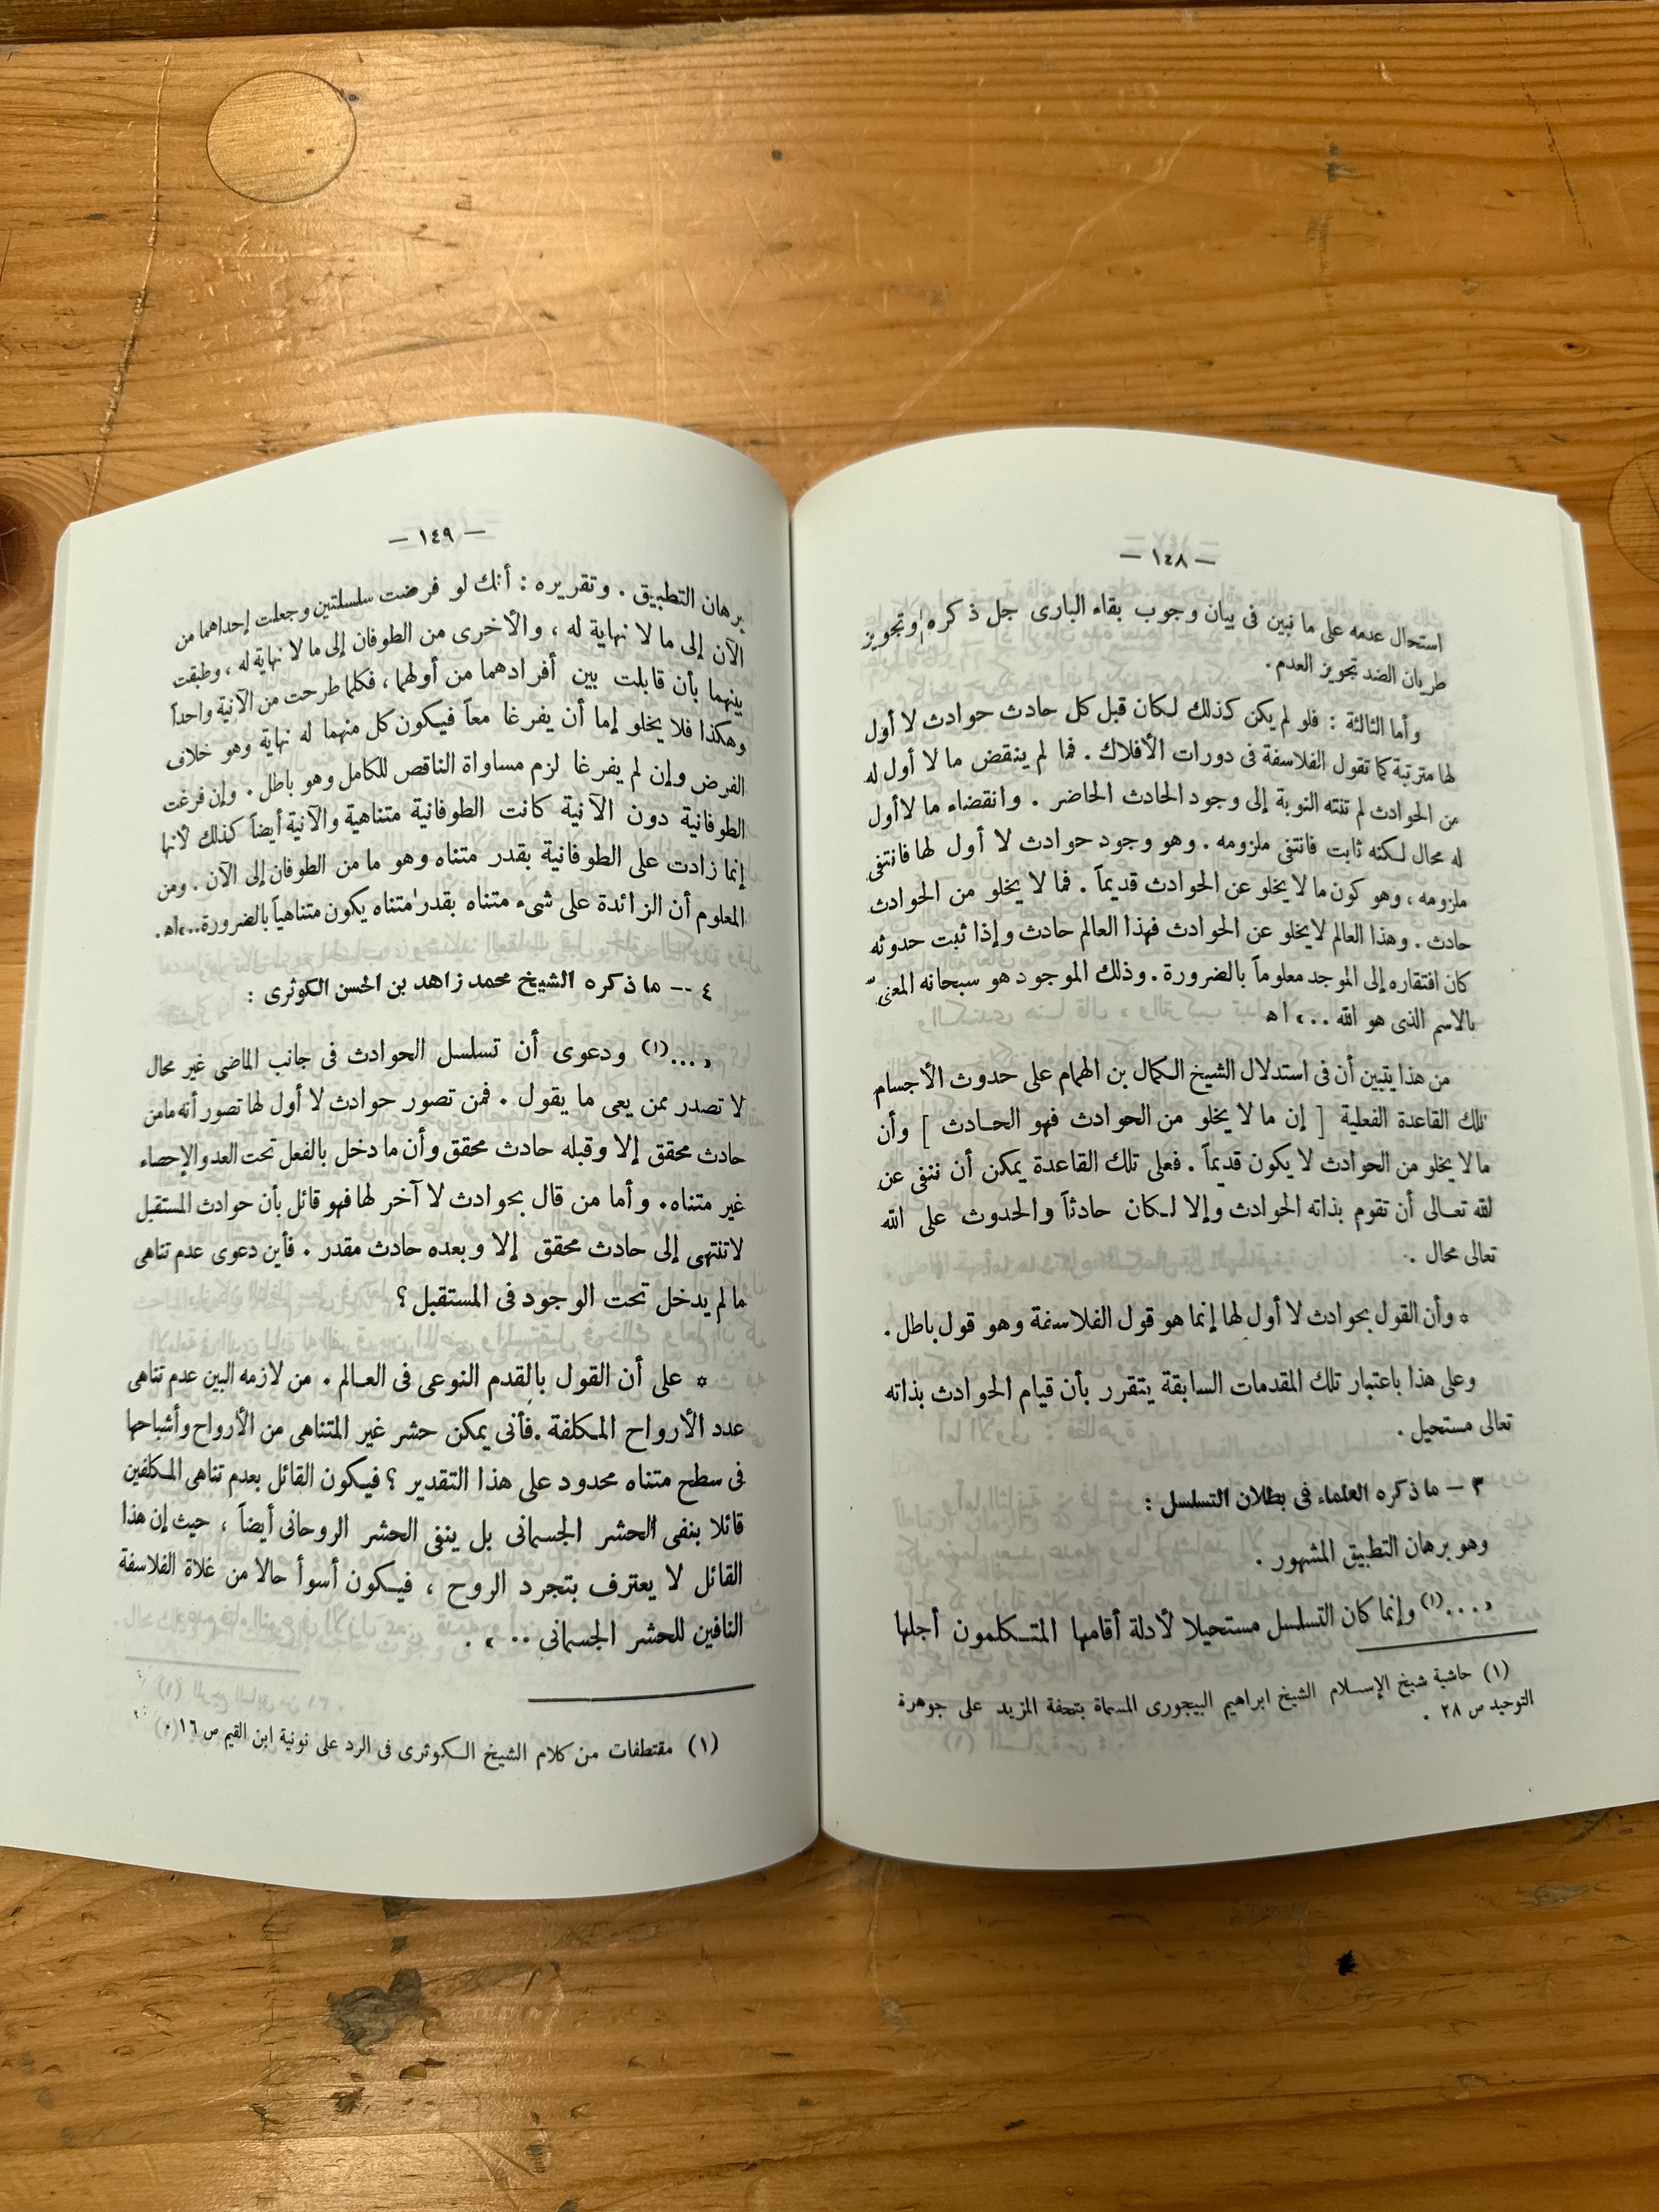 — ١٤٨ —
استحال عدمه على ما نبين فى بيان وجوب بقاء البارى جل ذكره وتجويز
طريان الضد تجويز العدم .
وأما الثالثة : فلو لم يكن كذلك لكان قبل كل حادث حوادث لا أول
لها مترتبة كما تقول الفلاسفة فى دورات الأفلاك . فما لم ينقض ما لا أول له
من الحوادث لم تنته النوبة إلى وجود الحادث الحاضر . وانقضاء ما لا أول
له محال لكنه ثابت فانتفى ملزومه . وهو وجود حوادث لا أول لها فانتفى
ملزومه ، وهو كون ما لا يخلو عن الحوادث قديماً . فما لا يخلو من الحوادث
حادث . وهذا العالم لا يخلو عن الحوادث فهذا العالم حادث وإذا ثبت حدوثه
كان افتقاره إلى الموجد معلوماً بالضرورة . وذلك الموجود هو سبحانه المعنىّ
بالاسم الذى هو الله .. ، اه
من هذا يتبين أن فى استدلال الشيخ الكمال بن الهمام على حدوث الأجسام
تلك القاعدة الفعلية [ إن ما لا يخلو من الحوادث فهو الحادث ] وأن
ما لا يخلو من الحوادث لا يكون قديماً . فعلى تلك القاعدة يمكن أن ننفى عن
لله تعالى أن تقوم بذاته الحوادث وإلا لكان حادثاً والحدوث على الله
تعالى محال .
* وأن القول بحوادث لا أول لها إنما هو قول الفلاسفة وهو قول باطل .
وعلى هذا باعتبار تلك المقدمات السابقة يتقرر بأن قيام الحوادث بذاته
تعالى مستحيل .
٣ – ما ذكره العلماء فى بطلان التسلسل :
وهو برهان التطبيق المشهور .
« ...(١) وإنما كان التسلسل مستحيلا لأدلة أقامها المتكلمون أجلها
(١) حاشية شيخ الإسلام الشيخ ابراهيم البيجورى المسماة بتحفة المزيد على جوهرة
التوحيد ص ٢٨ .
— ١٤٩ —
برهان التطبيق . وتقريره : أنك لو فرضت سلسلتين وجعلت إحداهما من
الآن إلى ما لا نهاية له ، والأخرى من الطوفان إلى ما لا نهاية له ، وطبقت
بينهما بأن قابلت بين أفرادهما من أولهما ، فكلما طرحت من الآنية واحداً
وهكذا فلا يخلو إما أن يفرغا معاً فيكون كل منهما له نهاية وهو خلاف
الفرض وإن لم يفرغا لزم مساواة الناقص للكامل وهو باطل . وإن فرغت
الطوفانية دون الآنية كانت الطوفانية متناهية والآنية أيضاً كذلك لأنها
إنما زادت على الطوفانية بقدر متناه وهو ما من الطوفان إلى الآن . ومن
المعلوم أن الزائدة على شىء متناه بقدر متناه يكون متناهياً بالضرورة .. ، اه .
٤ -- ما ذكره الشيخ محمد زاهد بن الحسن الكوثرى :
« ...(١) ودعوى أن تسلسل الحوادث فى جانب الماضى غير محال
لا تصدر ممن يعى ما يقول . فمن تصور حوادث لا أول لها تصور أنه ما من
حادث محقق إلا وقبله حادث محقق وأن ما دخل بالفعل تحت العد والإحصاء
غير متناه . وأما من قال بحوادث لا آخر لها فهو قائل بأن حوادث المستقبل
لا تنتهى إلى حادث محقق إلا وبعده حادث مقدر . فأين دعوى عدم تناهى
ما لم يدخل تحت الوجود فى المستقبل ؟
* على أن القول بالقدم النوعى فى العالم . من لازمه البين عدم تناهى
عدد الأرواح المكلفة . فأنى يمكن حشر غير المتناهى من الأرواح وأشباحها
فى سطح متناه محدود على هذا التقدير ؟ فيكون القائل بعدم تناهى المكلفين
قائلا بنفى الحشر الجسمانى بل ينفى الحشر الروحانى أيضاً ، حيث إن هذا
القائل لا يعترف بتجرد الروح ، فيكون أسوأ حالا من غلاة الفلاسفة
النافين للحشر الجسمانى .. ، .
(١) مقتطفات من كلام الشيخ الكوثرى فى الرد على نونية ابن القيم ص ١٦ .